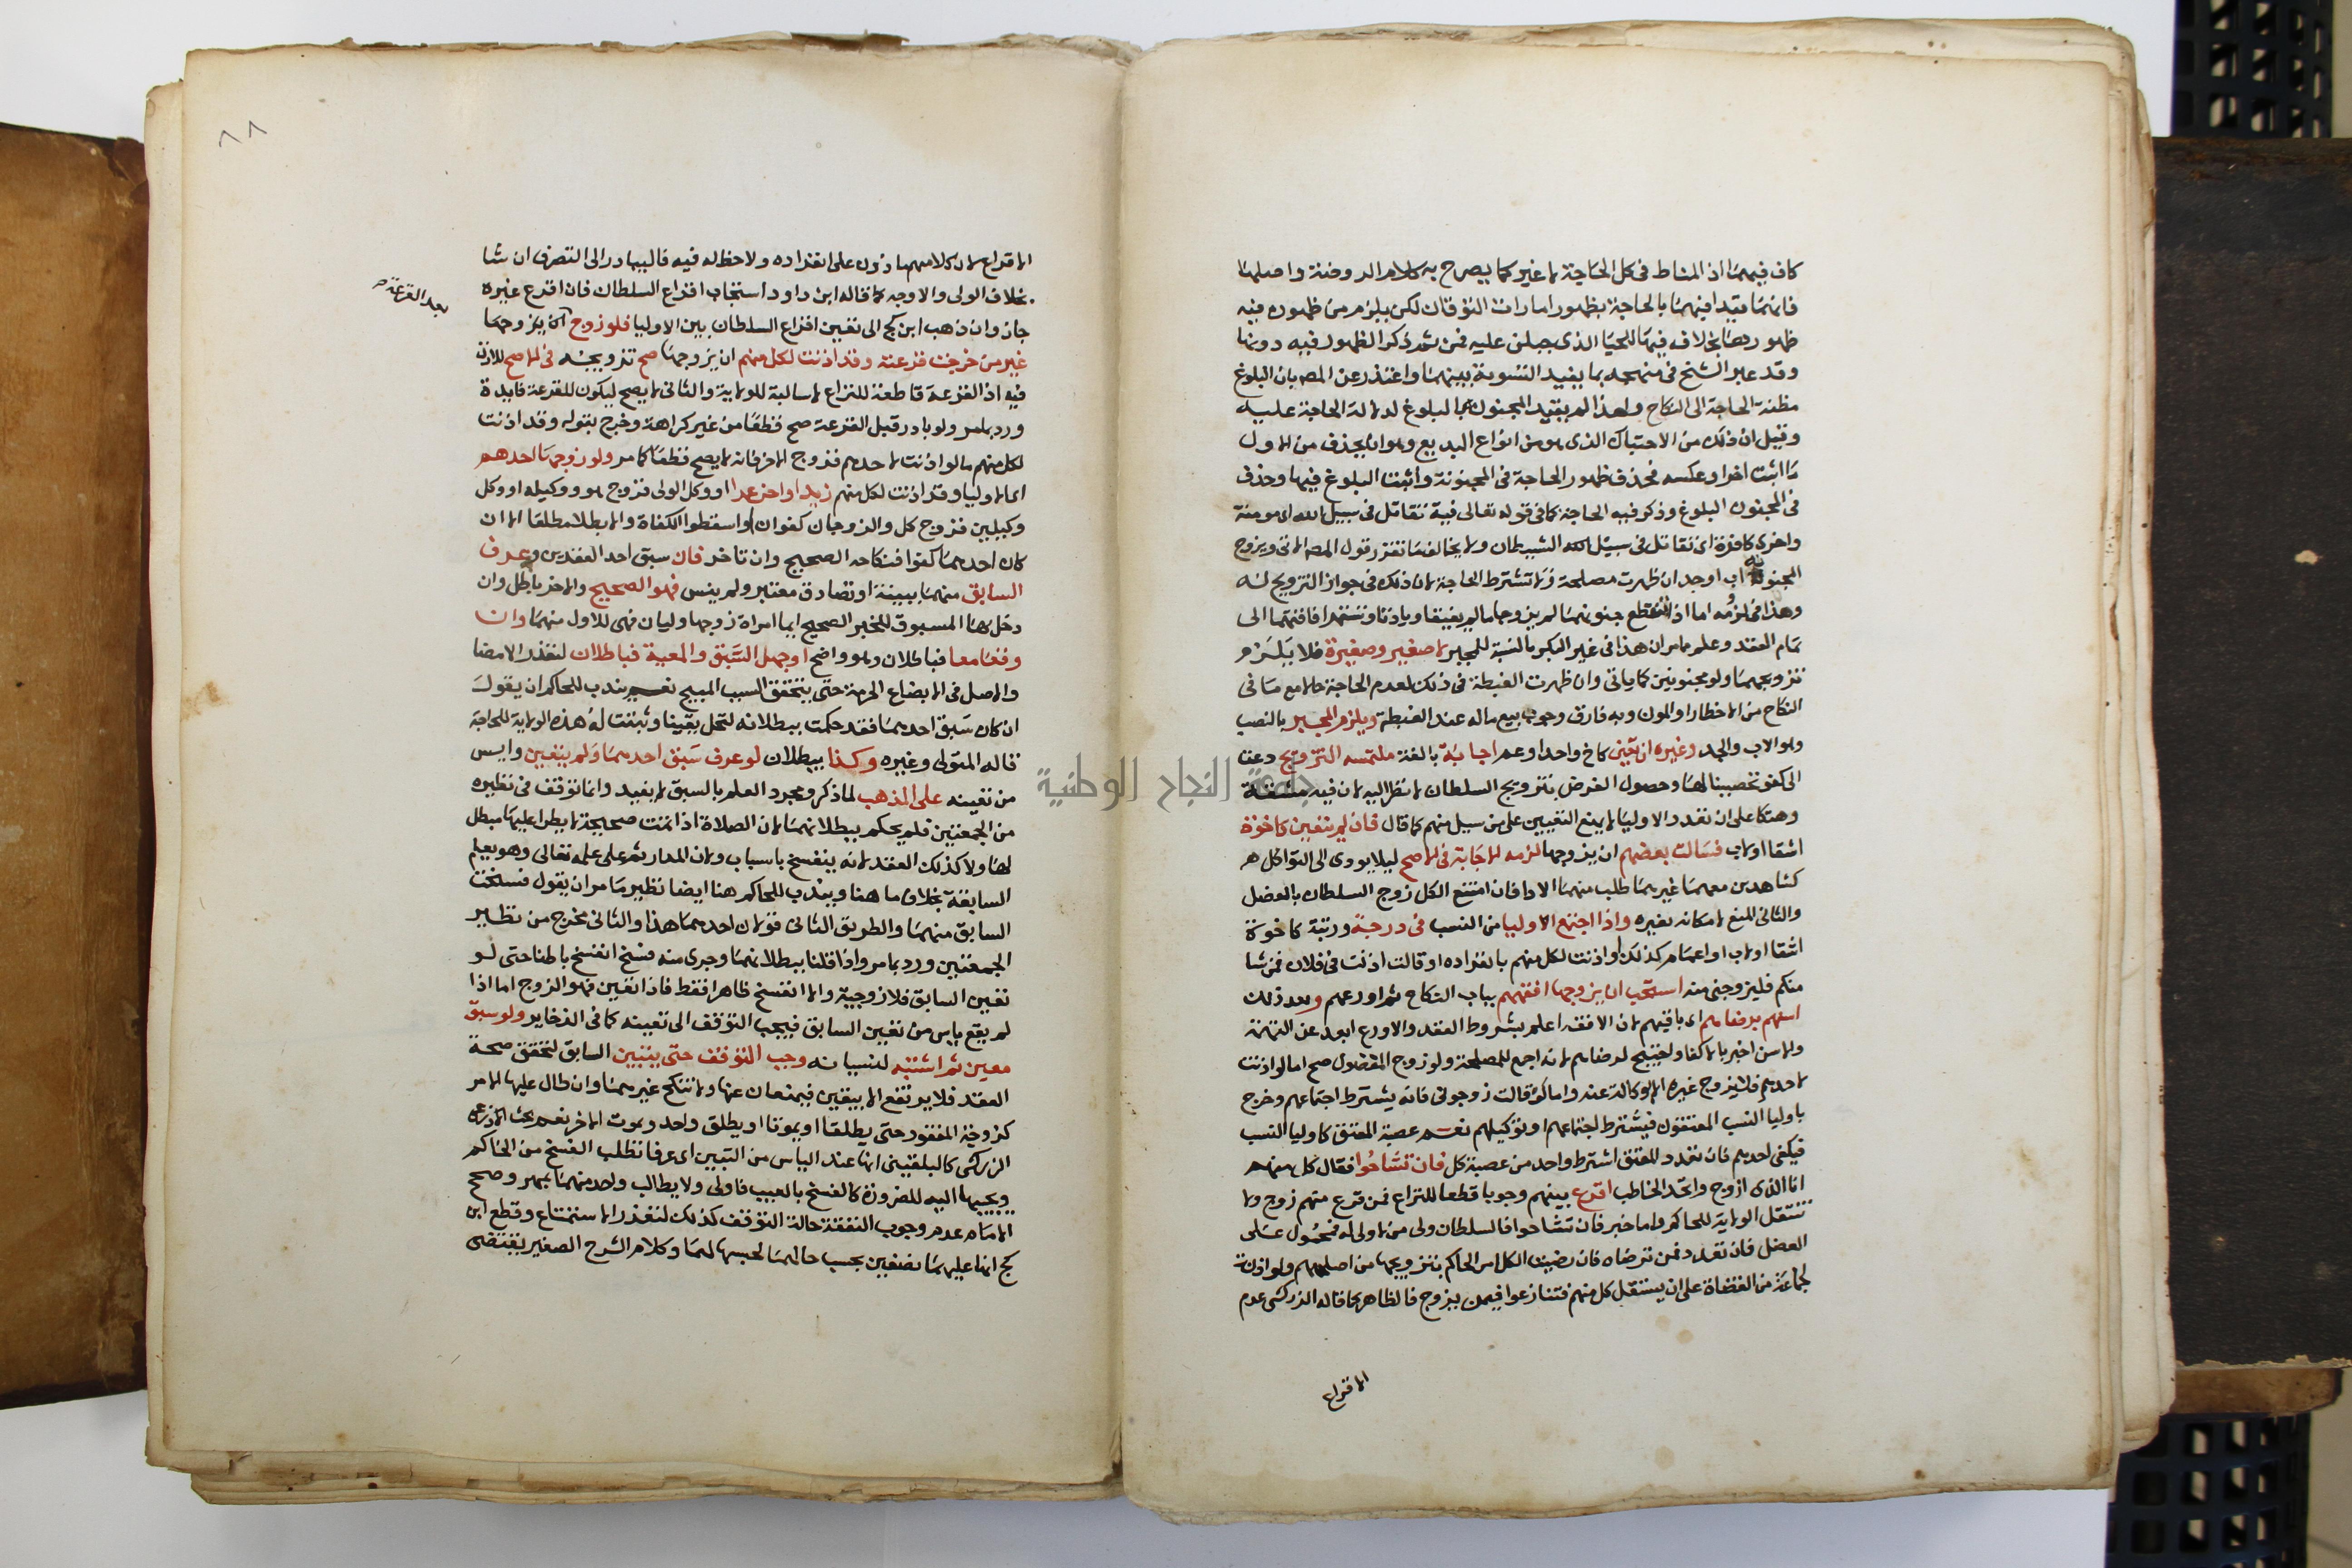 كاف فيهما اذ المناط في كل الحاجة لا غير كما يصرح به كلام الروضة واصلها
فانهما قيدا فيهما بالحاجة بظهور امارات التوقان لكن يلزم من ظهوره فيه
ظهورها بخلاف فيها للحيا الذي جبلن عليه فمن ثم ذكر الظهور فيه دونها
وقد عبر الشيخ في منهجه بما يفيد التسوية بينهما واعتذر عن المص بان البلوغ
مظنة الحاجة الى النكاح ولهذا لم يقيد المجنون بالبلوغ لدلالة الحاجة عليه
وقيل ان ذلك من الاحتباك الذي هو من انواع البديع وهو ان يحذف من الاول
ما اثبت اخرا وعكسه فحذف ظهور الحاجة في المجنونة واثبت البلوغ فيها وحذف
في المجنون البلوغ وذكر فيه الحاجة كما في قوله تعالى فية تقاتل في سبيل الله اي مومنة
واخرى كافرة اي تقاتل في سبيل الشيطان ولا يخالف ما تقرر قول المص الاتي ويزوج
المجنونة اب او جد ان ظهرت مصلحة ولا تشترط الحاجة لان ذلك في جواز التزويج له
وهذا في لزومه اما اذا تقطع جنونهما لم يزوجا ما لم يفيقا وياذنا وتستمر افاقتهما الى
تمام العقد وعلم مامر ان هذا في غير البكر بالنسبة للمجبر لا صغير وصغيرة فلا يلزم
تزويجهما ولو مجنونين كما ياتي وان ظهرت الغبطة في ذلك لعدم الحاجة حالا مع ما في
النكاح من الاخطار او المون وبه فارق وجوب بيع ماله عند الغبطة ويلزم المجبر بالنصب
وهو الاب والجد وغيره ان تعين كاخ واحد او عم اجابة بالغة ملتمسه التزويج دعت
الى كفو تحصينا لها وحصول الغرض بتزويج السلطان لا نظر اليه لان فيه مشقة
وهتكا على ان تعدد الاوليا لا يمنع التعيين على من سيل منهم كما قال فان لم يتعين كاخوة
اشقا او لاب فسالت بعضهم ان يزوجها لزمه الاجابة في الاصح ليلا يودي الى التواكل هـ
كشاهدين معهما غيرهما طلب منهما الادا فان امتنع الكل زوج السلطان بالعضل
والثاني المنع لامكانه بغيره واذا اجتمع الاوليا من النسب في درجة ورتبة كاخوة
اشقا او لاب او اعمام كذلك واذنت لكل منهم بانفراده او قالت اذنت في فلان فمن شا
منكم فليزوجني منه استحب ان يزوجها افقههم بباب النكاح ثم اورعهم وبعد ذلك
اسنهم برضاهم اي باقيهم لان الافقه اعلم بشروط العقد والاورع ابعد عن التهمة
والاسن اخبر بالاكفا واحتيج لرضاهم لانه اجمع للمصلحة ولو زوج المفضول صح اما لو اذنت
لاحدهم فلا يزوج غيره الا بوكالة عنه واما لو قالت زوجوني فانه يشترط اجتماعهم وخرج
باوليا النسب المعتقون فيشترط اجتماعهم او توكيلهم نعم عصبة المعتق كاوليا النسب
فيكفي احدهم فان تعدد المعتق اشترط واحد من عصبة كل فان تشاحوا فقال كل منهم
انا الذي ازوج واتحد الخاطب اقرع بينهم وجوبا قطعا للنزاع فمن قرع منهم زوج ولا
تنتقل الولاية للحاكم واما خبر فان تشاحوا فالسلطان ولي من لا ولي له فمحمول على
العضل فان تعدد فمن ترضاه فان رضيت الكل امر الحاكم بتزويجها من اصلحهم ولو اذنت
لجماعة من القضاة على ان يستقل كل منهم فتنازعوا فيمن يزوج فالظاهر كما قاله الزركشي عدم
الاقراع
٨٨
الاقراع لان كلا منهم ماذون على انفراده ولا حظ له فيه فاليبادر الى التصرف ان شا
بخلاف الولي والاوجه كما قاله ابن داود استحباب اقراع السلطان فان اقرع غيره
جاز وان ذهب ابن كج الى تعيين اقراع السلطان بين الاوليا فلو زوج اي يزوجها
بعد القرعة صح
غير من خرجت قرعته وقد اذنت لكل منهم ان يزوجها صح تزويجه في الاصح للاذن
فيه اذ القرعة قاطعة للنزاع لا سالبة للولاية والثاني لا يصح ليكون للقرعة فايدة
ورد بامر ولو بادر قبل القرعة صح قطعا من غير كراهة وخرج بقوله وقد اذنت
لكل منهم ما لو اذنت لاحدهم فزوج الاخر فانه لا يصح قطعا كما مر ولو زوجها احدهم
اي الاوليا وقد اذنت لكل منهم زيدا واخر عمرا او وكل الولي فزوج هو ووكيله او وكل
وكيلين فزوج كل والزوجان كفوان او اسقطوا الكفاة والا بطلا مطلقا الا ان
كان احدهما كفوا فنكاحه الصحيح وان تاخر فان سبق احد العقدين وعرف
السابق منهما ببينة او تصادق معتبر ولم ينس فهو الصحيح والاخر باطل وان
دخل بها المسبوق للخبر الصحيح ايما امراة زوجها وليان فهي للاول منهما وان
وقعا معا فباطلان وهو واضح او جهل السبق والمعية فباطلان لتعذر الامضا
والاصل في الابضاع الحرمة حتى يتحقق السبب المبيح نعم يندب للحاكم ان يقول
ان كان سبق احدهما فقد حكمت ببطلانه لتحل يقينا وثبتت له هذه الولاية للحاجة
قاله المتولي وغيره وكذا يبطلان لو عرف سبق احدهما ولم يتعين وايس
من تعينه على المذهب لما ذكر ومجرد العلم بالسبق لا يفيد وانما توقف في نظيره
من الجمعتين فلم يحكم ببطلانهما لان الصلاة اذا تمت صحيحة لا يطرا عليها مبطل
لها ولا كذلك العقد لانه ينفسخ باسباب ولان المدار ثم على علمه تعالى وهو يعلم
السابقة بخلاف ما هنا ويندب للحاكم هنا ايضا نظير ما مر ان يقول فسخت
السابق منهما والطريق الثاني قولان احدهما هذا والثاني مخرج من نظير
الجمعتين ورد بمامر واذا قلنا ببطلانهما وجرى منه فسخ انفسخ باطنا حتى لو
تعين السابق فلا زوجية والا انفسخ ظاهرا فقط فاذا تعين فهو الزوج اما اذا
لم يقع ياس من تعين السابق فيجب التوقف الى تعيينه كما في الذخاير ولو سبق
معين ثم اشتبه لنسيانه وجب التوقف حتى يتبين السابق لتحقق صحة
العقد فلا يرتفع الا بيقين فيمنعان عنها ولا تنكح غيرهما وان طال عليها الامر
كزوجة المفقود حتى يطلقا او يموتا او يطلق واحد ويموت الاخر نعم بحث الاذرعي
الزركشي كالبلقيني انها عند الياس من التبين اي عرفا تطلب الفسخ من الحاكم
ويجيبها اليه للضرورة كالفسخ بالعيب فاولى ولا يطالب واحد منهما بمهر وصحح
الامام عدم وجوب النفقة حالة التوقف كذلك لتعذر الاستمتاع وقطع ابن
كج انها عليهما نصفين بحسب حالهما لحبسها لهما وكلام الشرح الصغير يقتضي
جامعة النجاح الوطنية